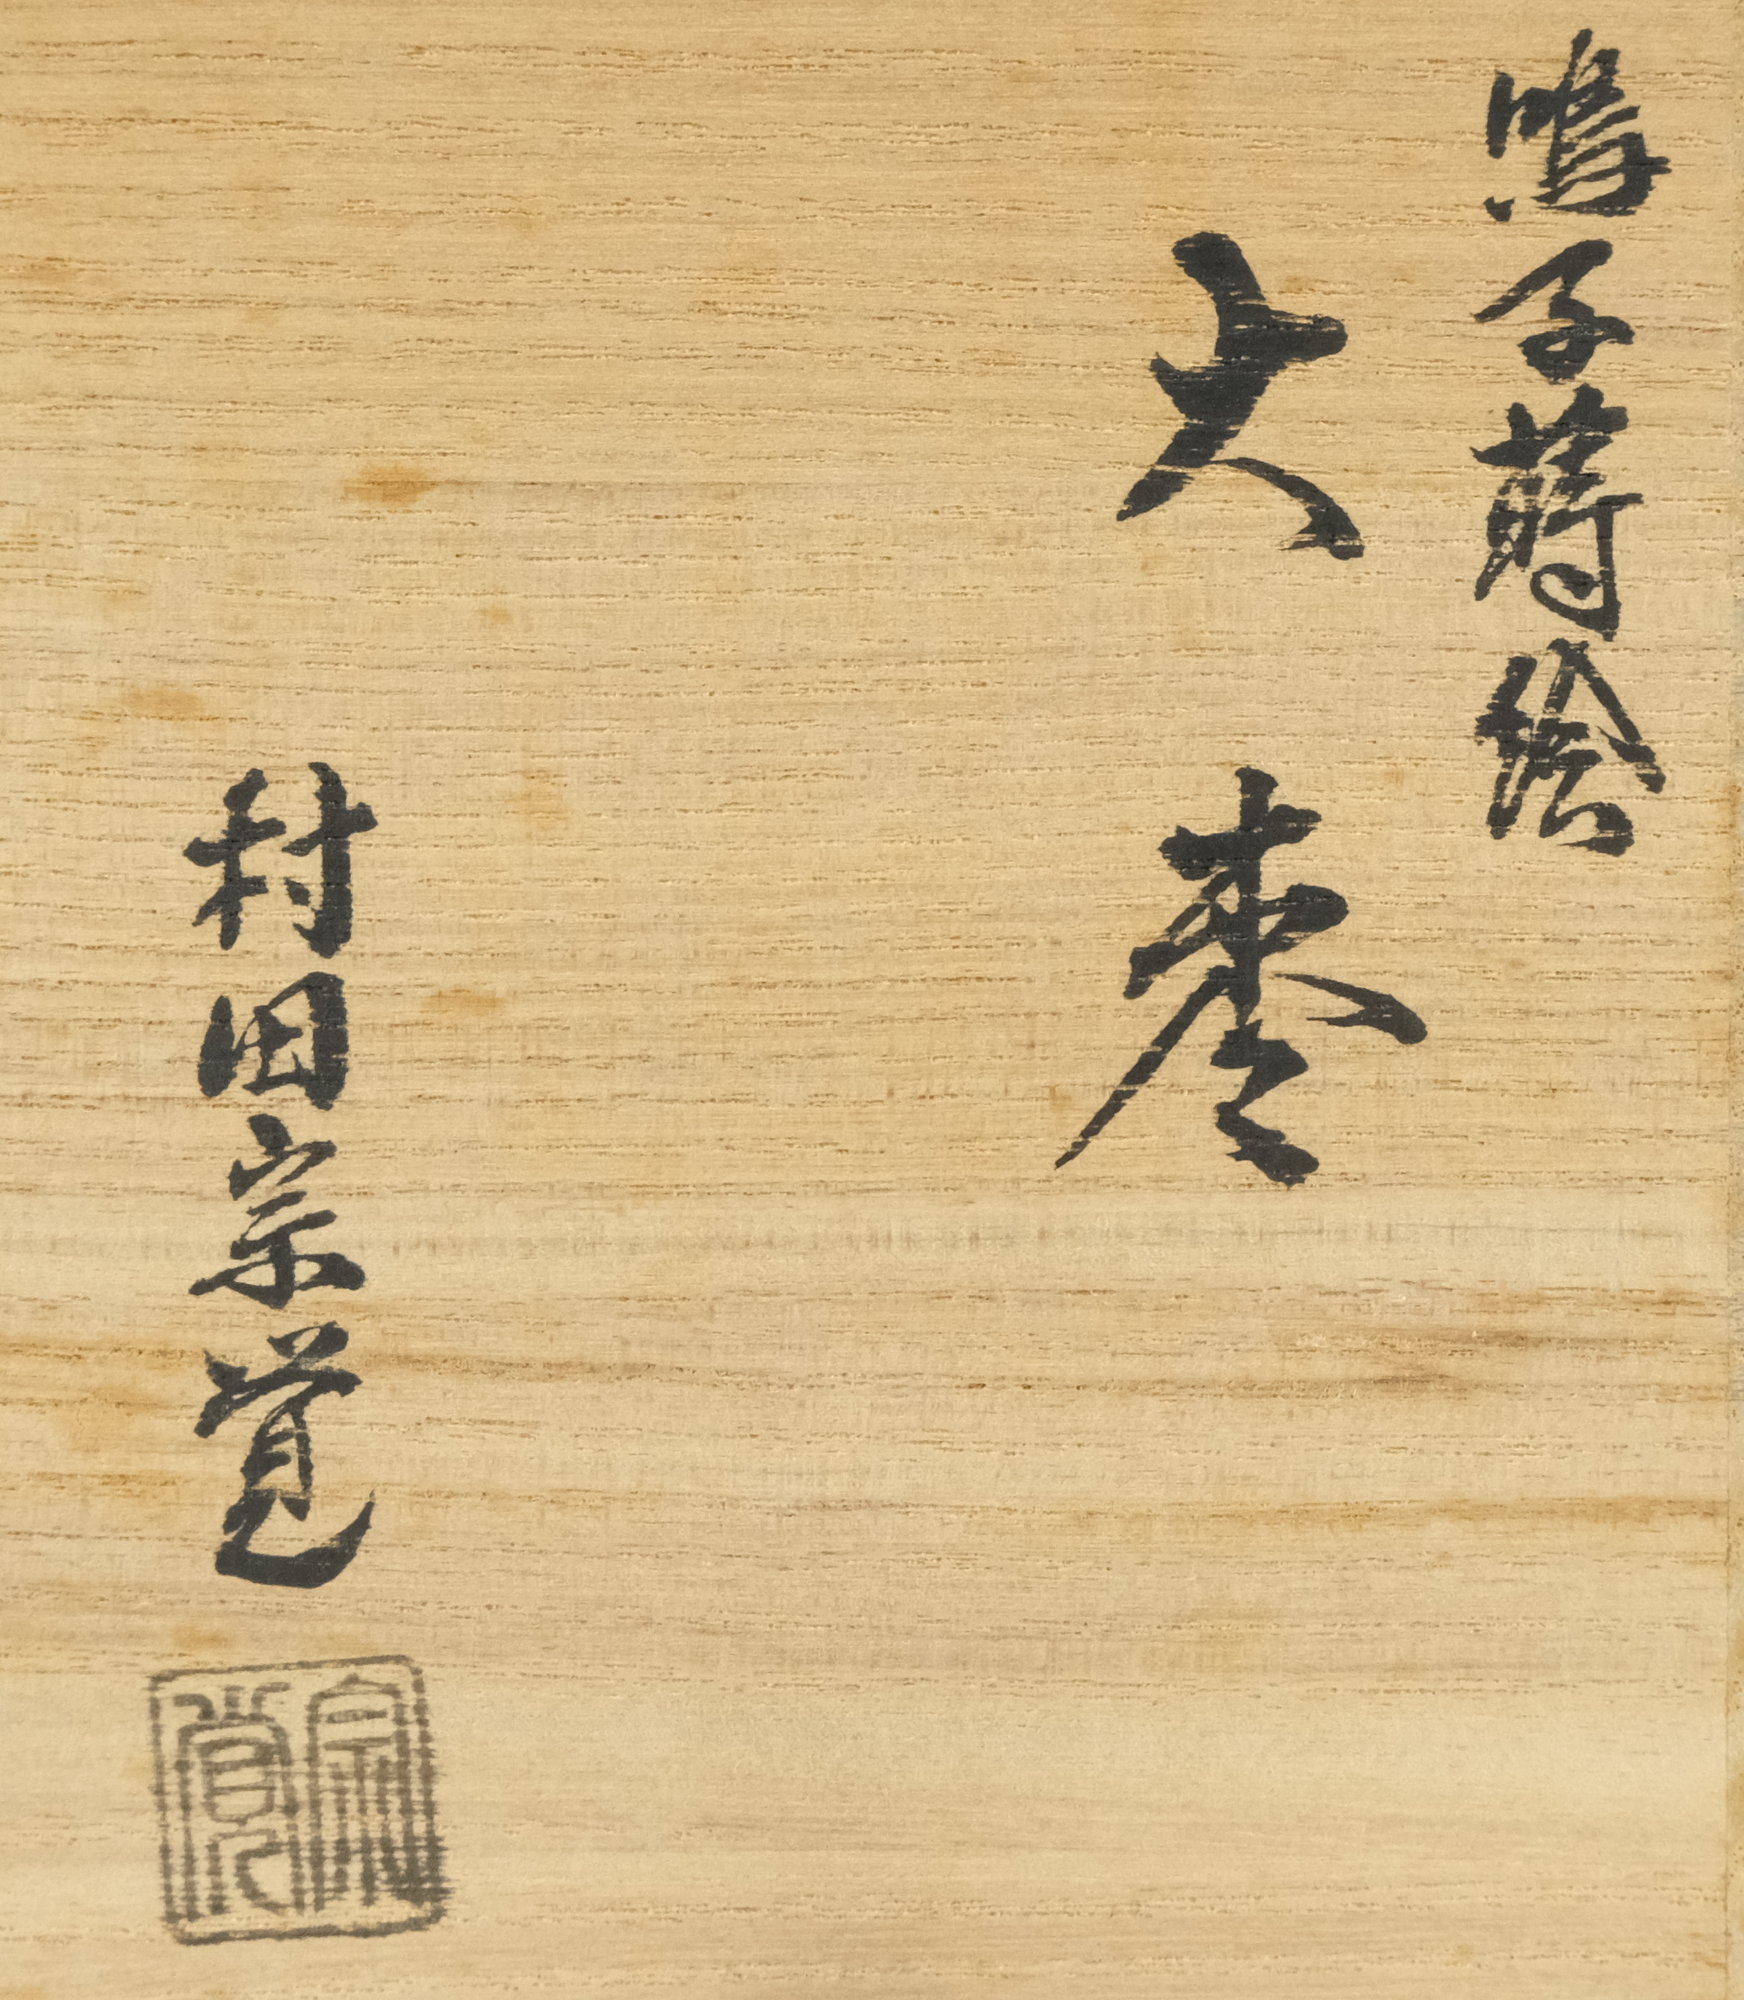 鳴子蒔絵
大棗
村田宗覚
宗覚